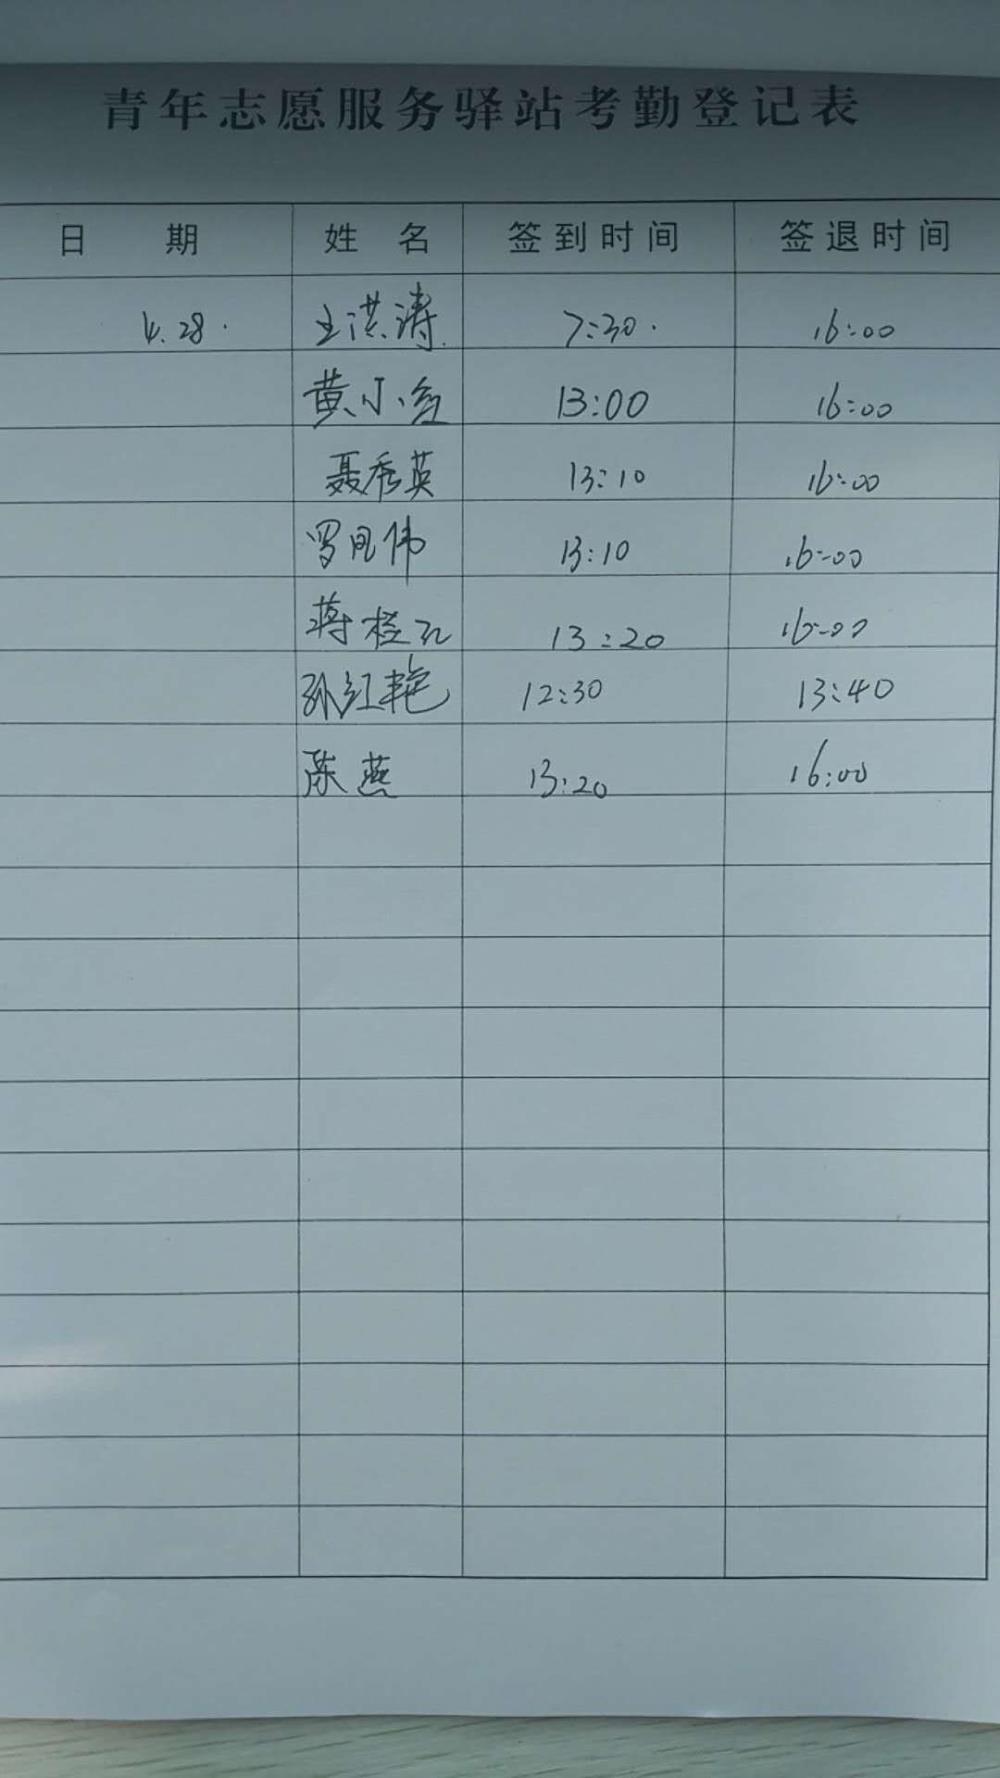 青年志愿服务驿站考勤登记表
日期 姓名 签到时间 签退时间
4.28. 王洪涛 7:30. 16:00
黄小红 13:00 16:00
聂秀英 13:10 16:00
罗 伟 13:10 16:00
蒋桂 13:20 16:00
孙红艳 12:30 13:40
陈燕 13:20 16:00